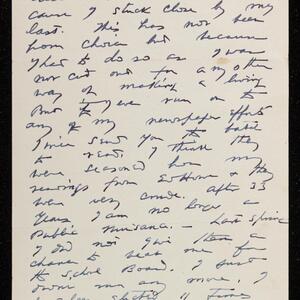 cause I stuck close by my
last. This has not been
from choice but because
I had to do so as I was
not cut out for any other
way of making a living
But if I ever run on to
any of my newspaper efforts
I will send you the
to read. I think they
were seasoned from my
readings from Ed Howe & they
were very crude. After 33
years I am no longer a
public nuisance. Last Spring
I did not give them a
chance to beat me for
the School Board. I just
any more. I
elected 11 times